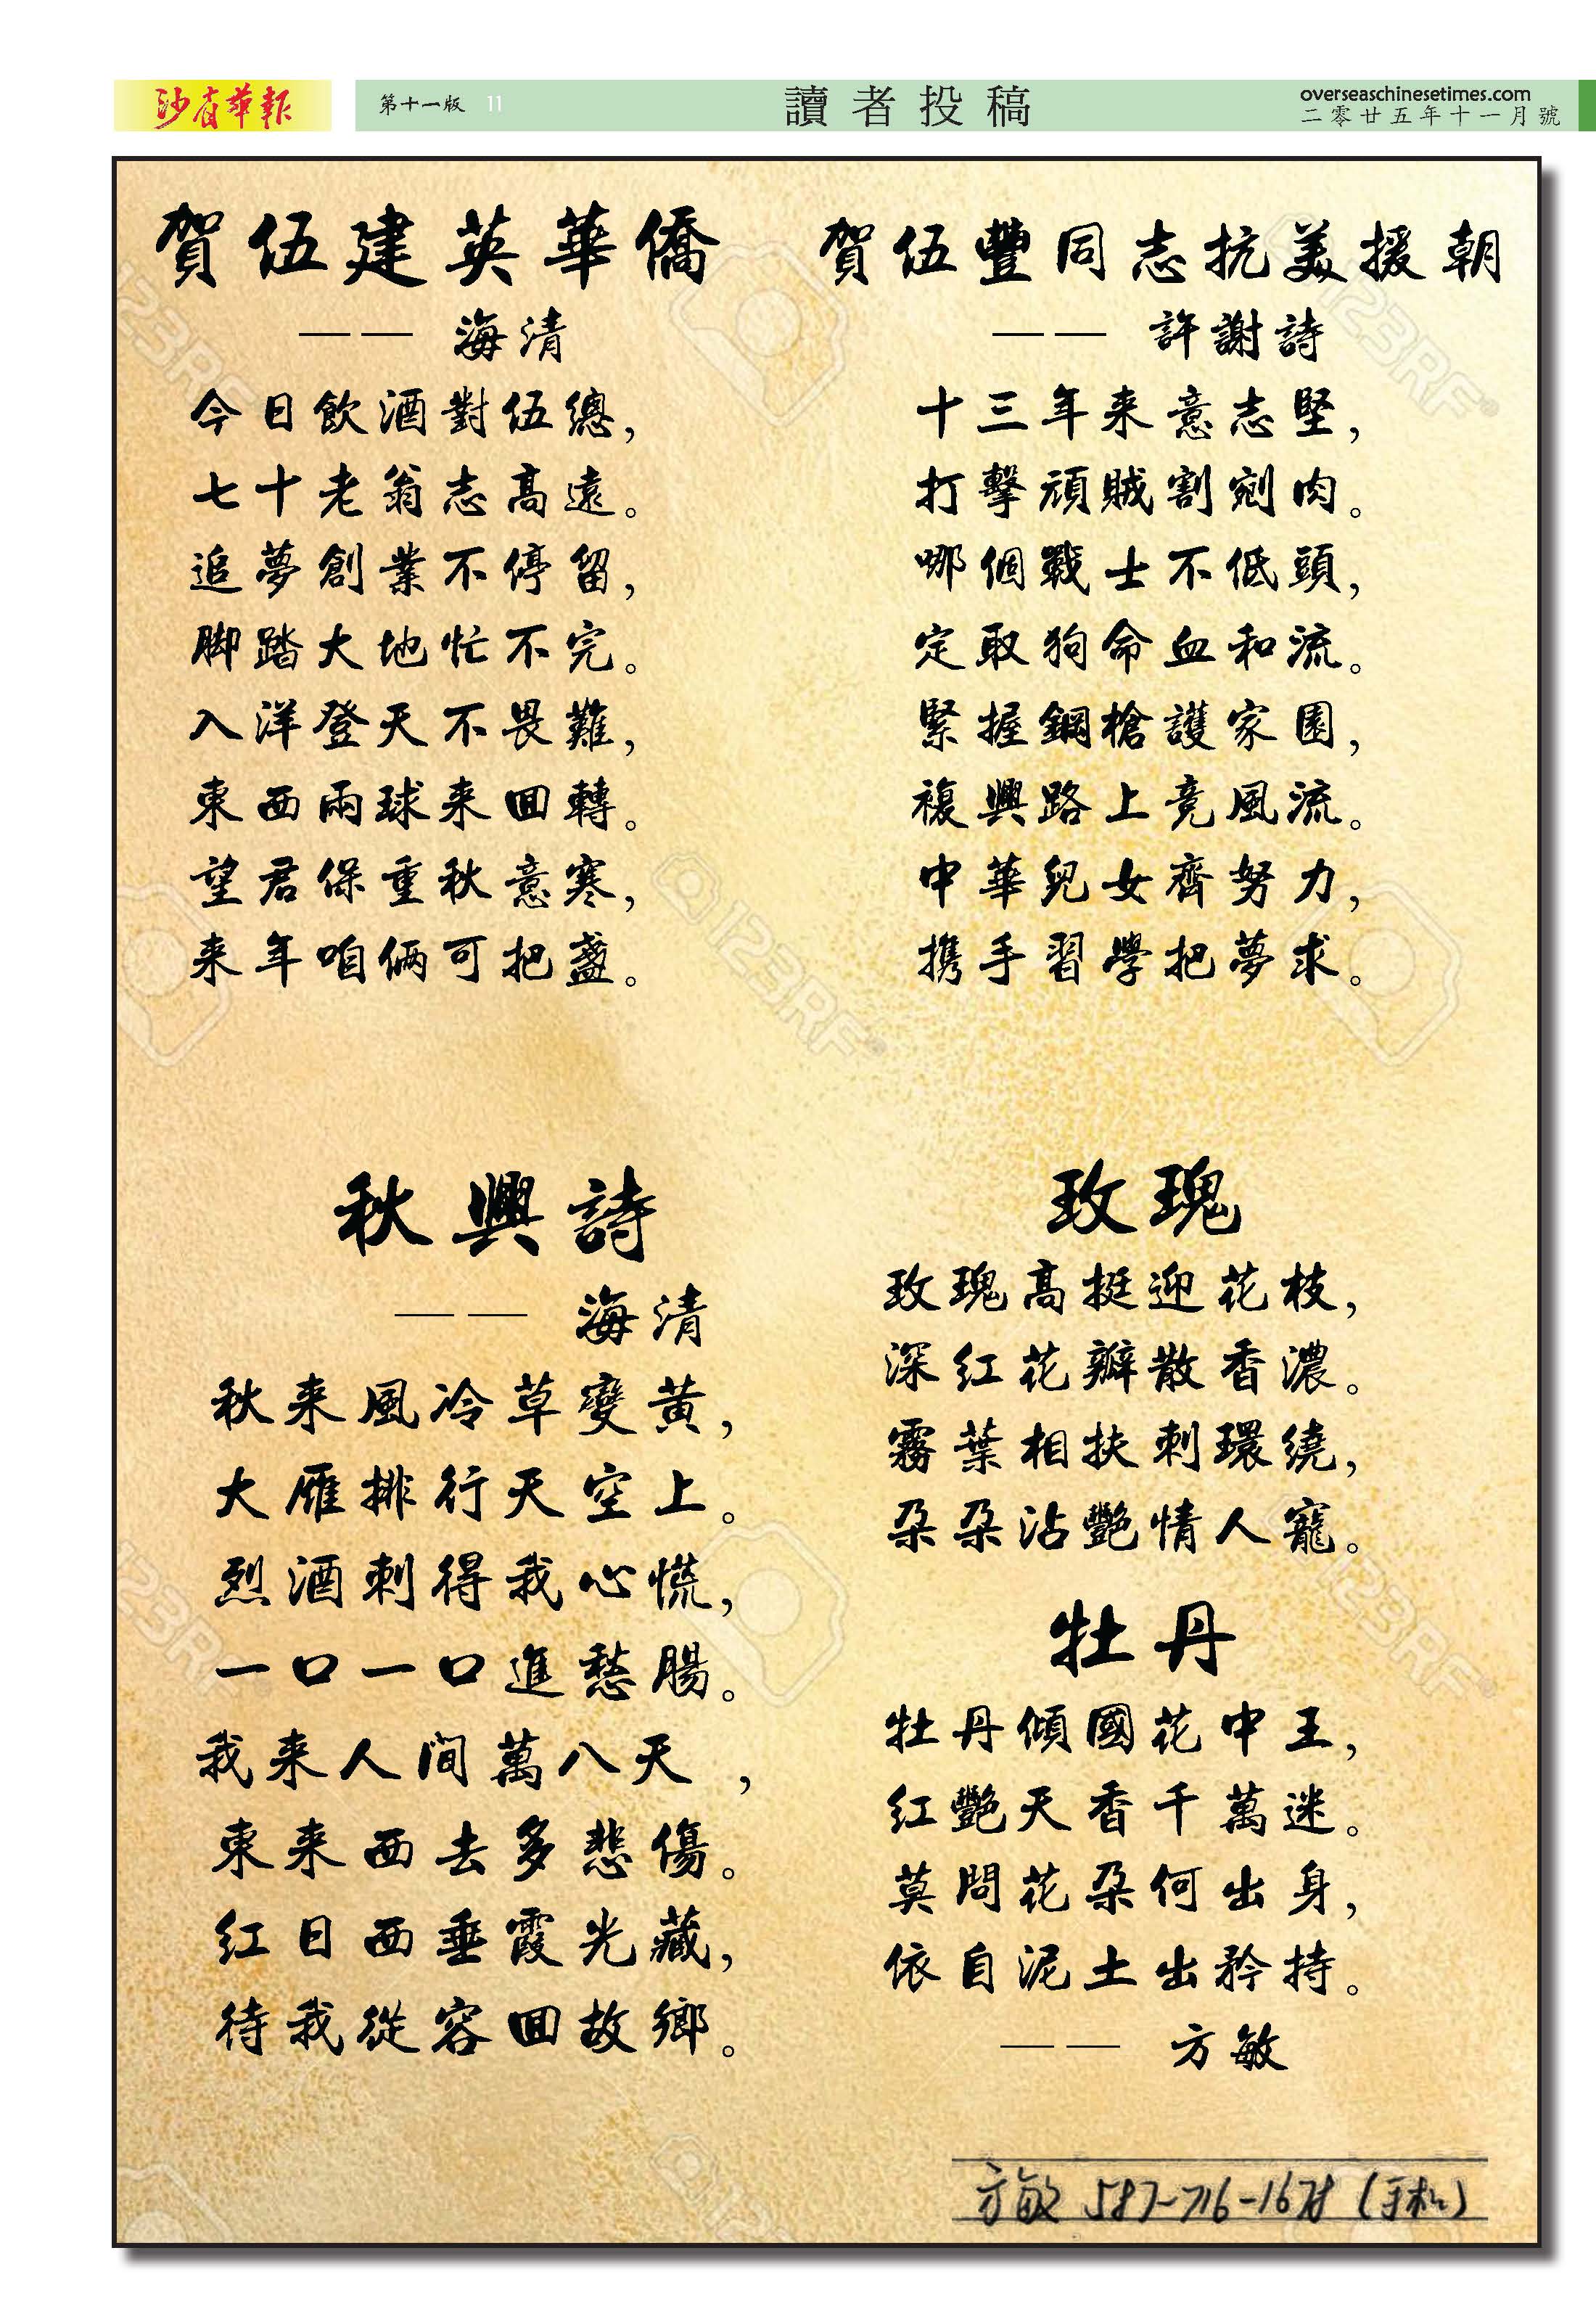 沙省華報
第十一版 11
讀者投稿
overseaschinesetimes.com
二零廿五年十一月號
賀伍建英華僑
—— 海清
今日飲酒對伍總，
七十老翁志高遠。
追夢創業不停留，
脚踏大地忙不完。
入洋登天不畏難，
東西兩球来回轉。
望君保重秋意寒，
来年咱倆可把盞。
賀伍豐同志抗美援朝
—— 許謝詩
十三年来意志堅，
打擊頑賊割剜肉。
哪個戰士不低頭，
定取狗命血和流。
緊握鋼槍護家園，
複興路上竞風流。
中華兒女齊努力，
携手習學把夢求。
秋興詩
—— 海清
秋来風冷草變黄，
大雁排行天空上。
烈酒刺得我心慌，
一口一口進愁腸。
我来人间萬八天 ，
東来西去多悲傷。
红日西垂霞光藏，
待我從容回故鄉。
玫瑰
玫瑰高挺迎花枝，
深红花瓣散香濃。
霧葉相扶刺環繞，
朵朵沾艷情人寵。
牡丹
牡丹傾國花中王，
红艷天香千萬迷。
莫問花朵何出身，
依自泥土出矜持。
—— 方敏
方敏 587-716-1678 (手机)
123RF
123RF
123RF
123RF
123RF